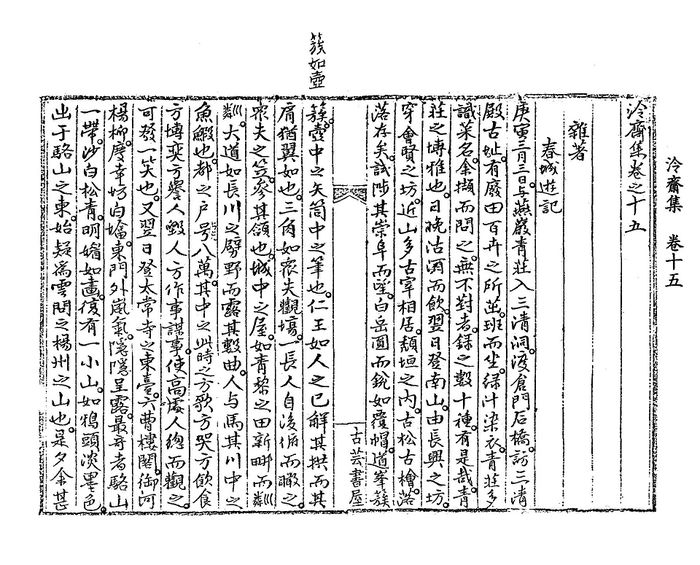 泠齋集 卷十五
泠齋集卷之十五
雜著
春城遊記
庚寅三月三日与燕巖青莊入三清洞渡倉門石橋訪三清
殿古址有廢田百卉之所茁班而坐綠汁染衣青莊多
識菜名余擷而問之無不對者錄之數十種有是哉青
莊之博雅也日晚沽酒而飮翌日登南山由長興之坊
穿會賢之坊近山多古宰相居頹垣之內古松古檜落
落存矣試陟其崇阜而望白岳圓而銳如覆帽道峯簇
古芸書屋
簇如壺
簇壺中之矢筒中之筆也仁王如人之已解其拱而其
肩猶翼如也三角如衆夫觀場一長人自後俯而瞰之
衆夫之笠參其頷也城中之屋如青黎之田新畊而粼粼
大道如長川之劈野而露其數曲人与馬其川中之
魚鰕也都之戶号八萬其中之此時之方歌方哭方飮食
方博奕方譽人毁人方作事謀事使高處人總而觀之
可發一笑也又翌日登太常寺之東臺六曹樓閣御河
楊柳慶幸坊白塔東門外嵐氣隱隱呈露最奇者駱山
一帶沙白松青明媚如畫復有一小山如鴉頭淡墨色
出于駱山之東始疑爲雲問之楊州之山也是夕余甚